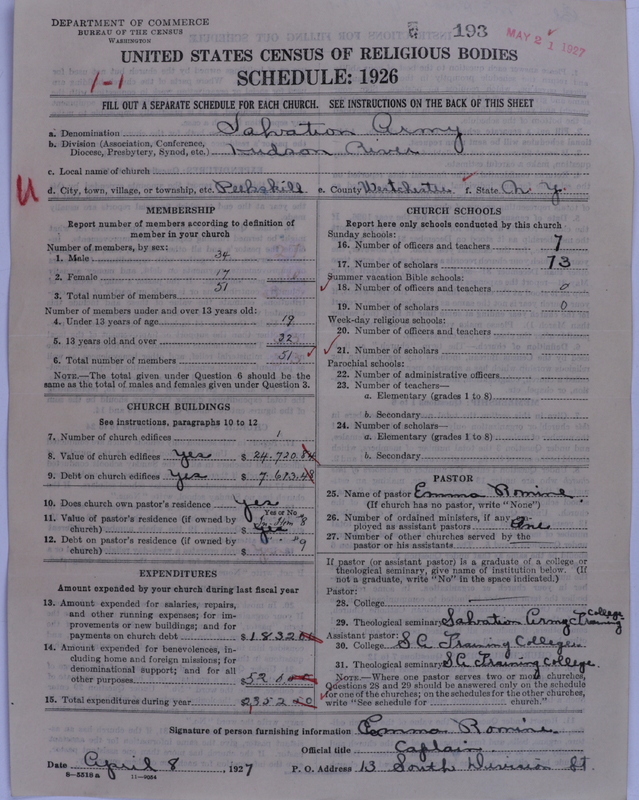 DEPARTMENT OF COMMERCE
BUREAU OF THE CENSUS
WASHINGTON
193
MAY 21 1927
UNITED STATES CENSUS OF RELIGIOUS BODIES
SCHEDULE: 1926
1-1
FILL OUT A SEPARATE SCHEDULE FOR EACH CHURCH. SEE INSTRUCTIONS ON THE BACK OF THIS SHEET
a. Denomination Salvation Army
b. Division (Association, Conference, Diocese, Presbytery, Synod, etc.) Hudson River
c. Local name of church
U
d. City, town, village, or township, etc. Peekskill e. County Westchester f. State N. Y.
MEMBERSHIP
Report number of members according to definition of
member in your church
Number of members, by sex:
1. Male 34
2. Female 17
3. Total number of members 51
Number of members under and over 13 years old:
4. Under 13 years of age 19
5. 13 years old and over 32
6. Total number of members 51
NOTE.—The total given under Question 6 should be the
same as the total of males and females given under Question 3.
CHURCH BUILDINGS
See instructions, paragraphs 10 to 12
7. Number of church edifices 1
8. Value of church edifices Yes $ 24.720.
9. Debt on church edifices Yes $ 7.673.48
10. Does church own pastor's residence Yes
Yes or No
11. Value of pastor's residence (if owned by
church) Yes
12. Debt on pastor's residence (if owned by
church) $
EXPENDITURES
Amount expended by your church during last fiscal year
13. Amount expended for salaries, repairs,
and other running expenses; for im-
provements or new buildings; and for
payments on church debt $ 1832
14. Amount expended for benevolences, in-
cluding home and foreign missions; for
denominational support; and for all
other purposes $ 520
15. Total expenditures during year $ 2352
CHURCH SCHOOLS
Report here only schools conducted by this church
Sunday schools:
16. Number of officers and teachers 7
17. Number of scholars 73
Summer vacation Bible schools:
18. Number of officers and teachers 0
19. Number of scholars 0
Week-day religious schools:
20. Number of officers and teachers
21. Number of scholars
Parochial schools:
22. Number of administrative officers
23. Number of teachers—
a. Elementary (grades 1 to 8)
b. Secondary
24. Number of scholars—
a. Elementary (grades 1 to 8)
b. Secondary
PASTOR
25. Name of pastor Emma Romine
(If church has no pastor, write "None")
26. Number of ordained ministers, if any, em-
ployed as assistant pastors One
27. Number of other churches served by the
pastor or his assistants
If pastor (or assistant pastor) is a graduate of a college or
theological seminary, give name of institution below. (If
not a graduate, write "No" in the space indicated.)
Pastor:
28. College
29. Theological seminary Salvation Army Training College
Assistant pastor:
30. College S.A. Training College.
31. Theological seminary S.A. Training College.
NOTE.—Where one pastor serves two or more churches,
Questions 28 and 29 should be answered only on the schedule
for one of the churches; on the schedules for the other churches,
write "See schedule for church."
Signature of person furnishing information Emma Romine
Official title Captain
Date April 8, 1927 P. O. Address 13 South Division St.
8—5518a 11—9054